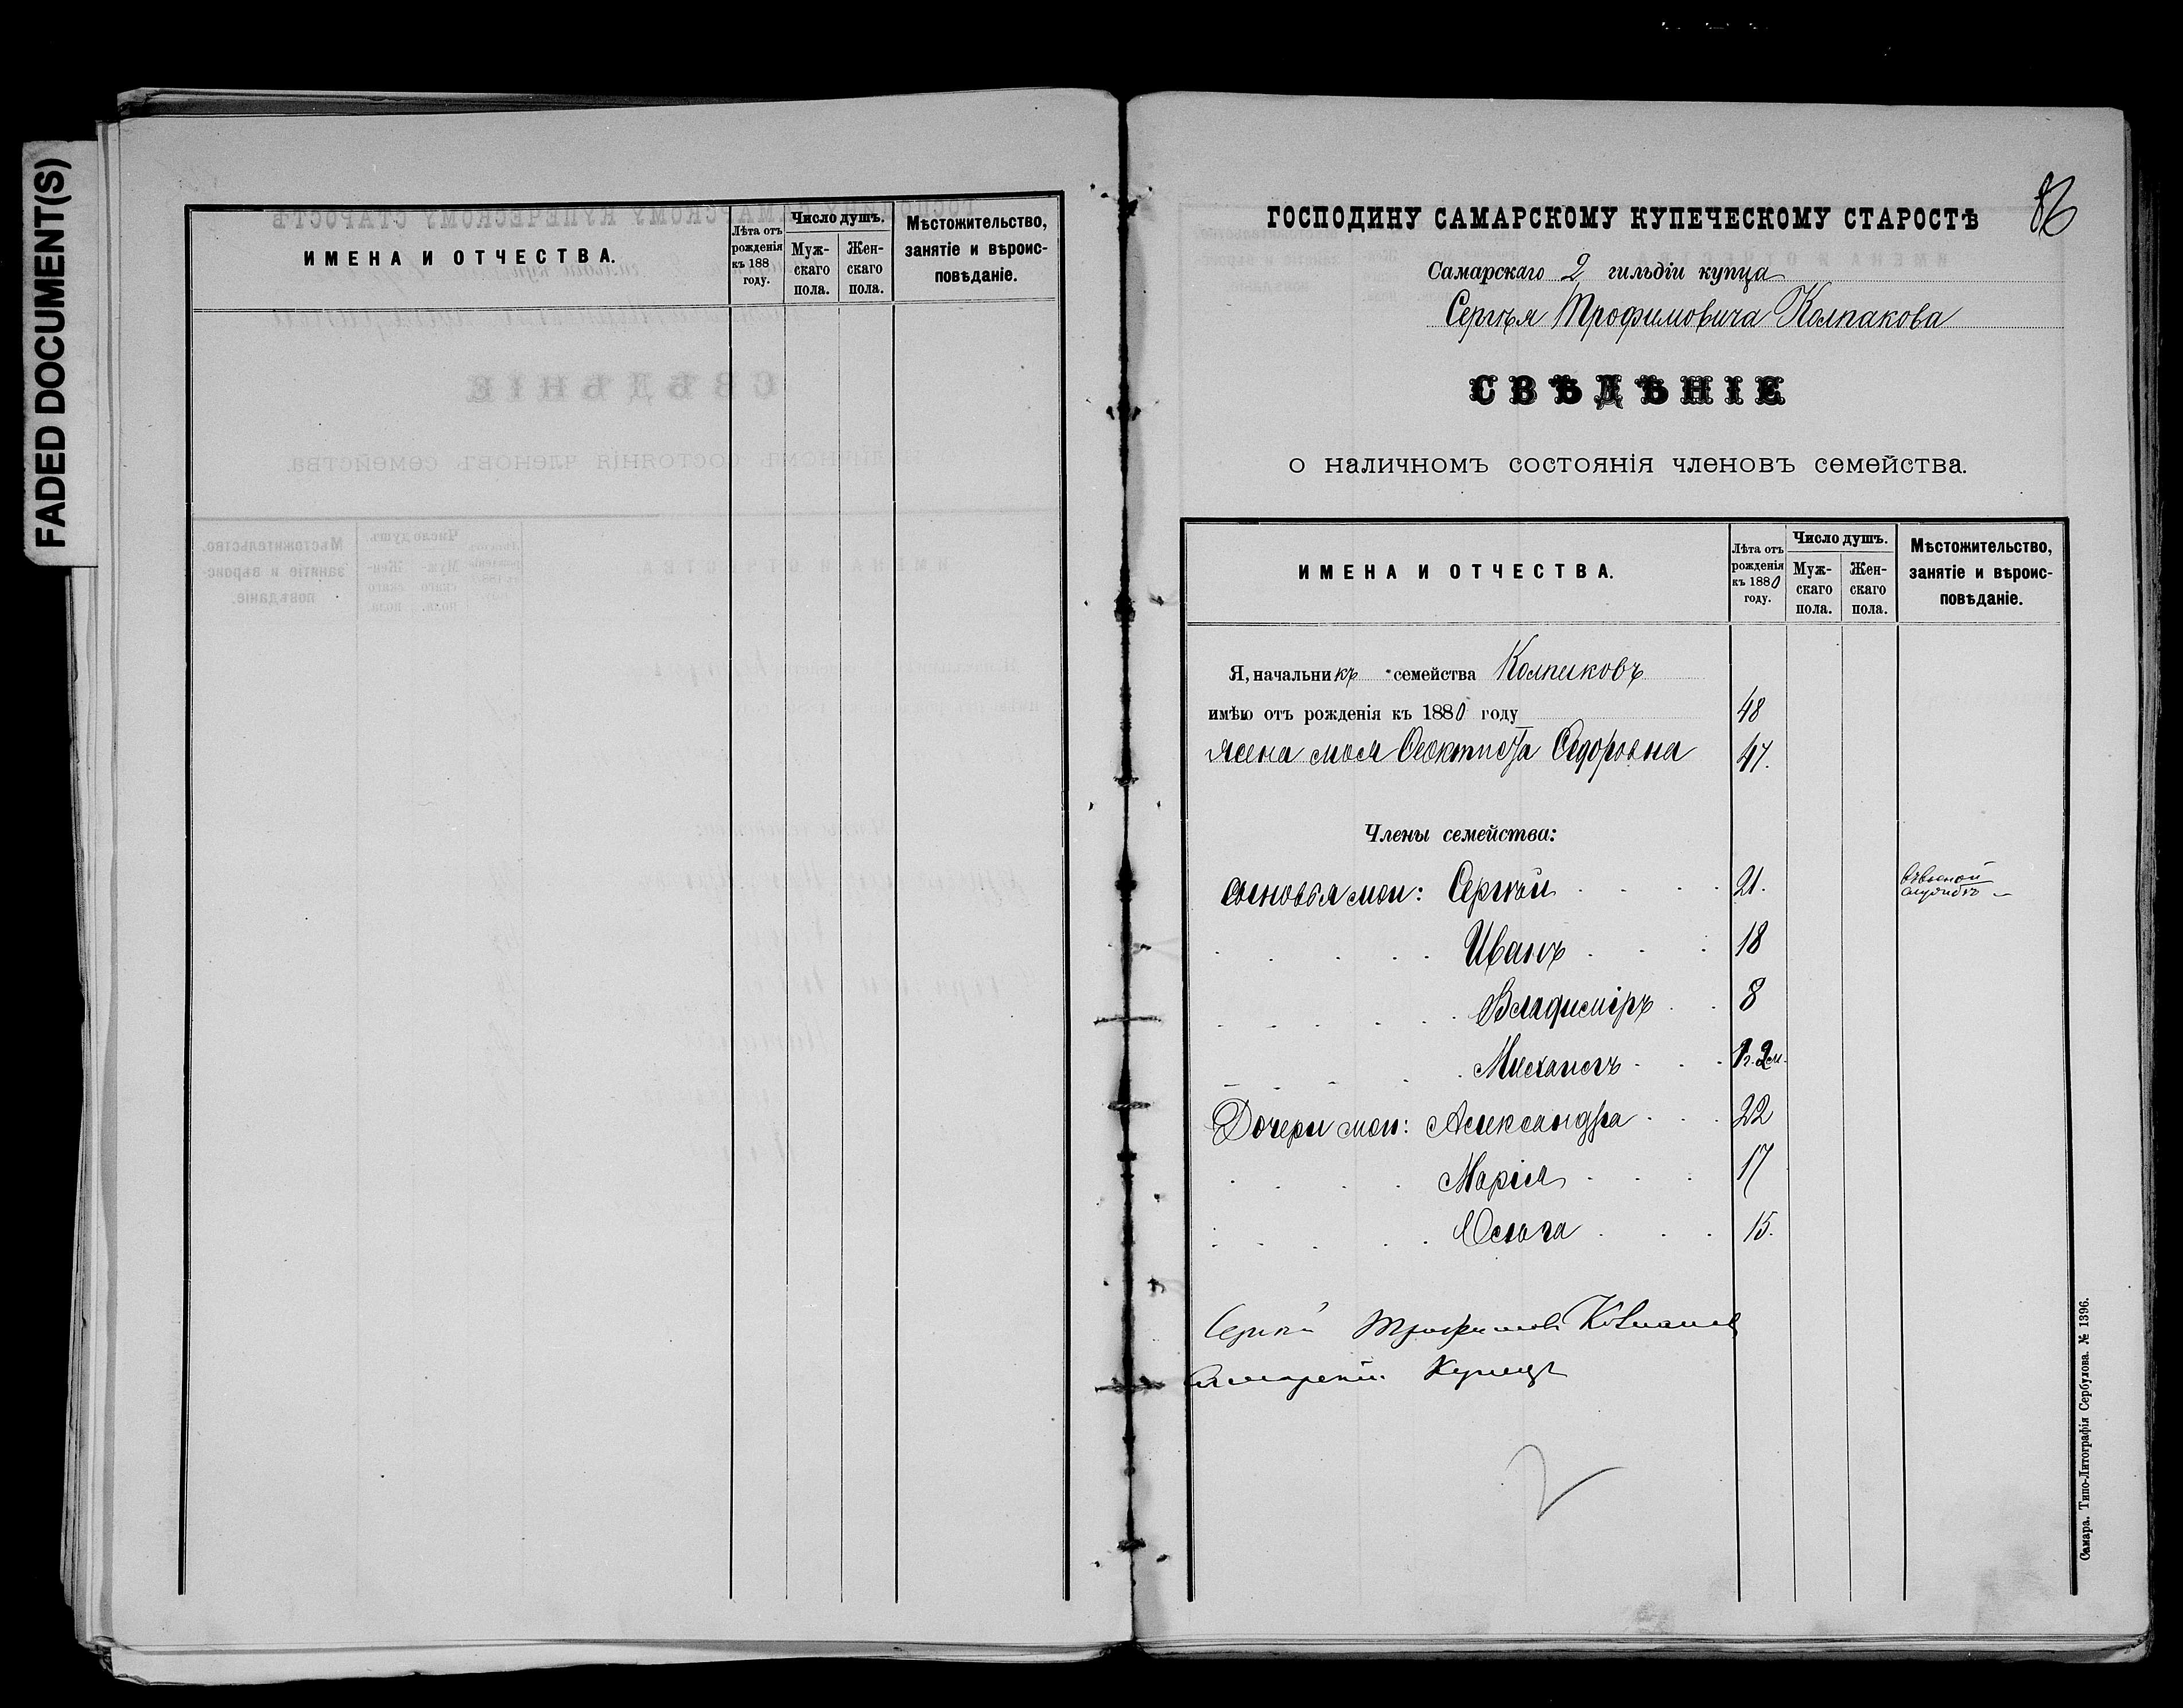 FADED DOCUMENT(S)
ИМЕНА И ОТЧЕСТВА.
Лѣта отъ рожденія къ 188 году.
Число душъ.
Мужскаго пола.
Женскаго пола.
Мѣстожительство, занятіе и вѣроисповѣданіе.
86
ГОСПОДИНУ САМАРСКОМУ КУПЕЧЕСКОМУ СТАРОСТѢ
Самарскаго 2 гильдіи купца
Сергѣя Трофимовича Колпакова
СВѢДѢНІЕ
о наличномъ состоянія членовъ семейства.
ИМЕНА И ОТЧЕСТВА.
Лѣта отъ рожденія къ 1880 году.
Число душъ.
Мужскаго пола.
Женскаго пола.
Мѣстожительство, занятіе и вѣроисповѣданіе.
Я, начальникъ семейства Колпаковъ
имѣю отъ рожденія къ 1880 году 48
жена моя Феоктиста Федоровна 47.
Члены семейства:
сыновья мои: Сергѣй 21. въ военной
службѣ
Иванъ 18
Владиміръ 8
Михаилъ 1 г. 2 м.
Дочери мои: Александра 22
Марія 17
Ольга 15.
Сергей Трофимовъ Колпаков
Самарский Купецъ
Самара. Типо-Литографія Сербулова. № 1396.